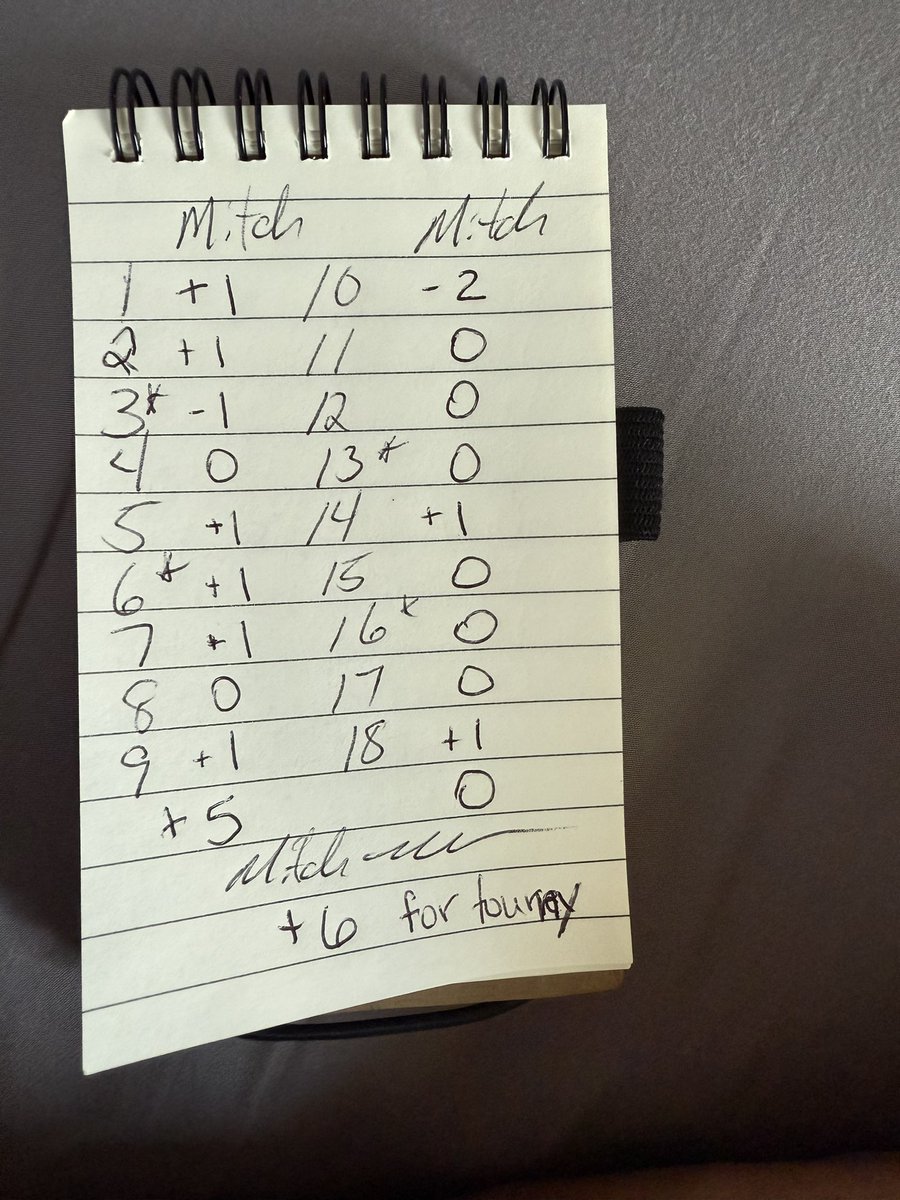 Mitch Mitch
1 +1 10 -2
2 +1 11 0
3* -1 12 0
4 0 13* 0
5 +1 14 +1
6* +1 15 0
7 +1 16* 0
8 0 17 0
9 +1 18 +1
+5 0
Mitch
+6 for tourny